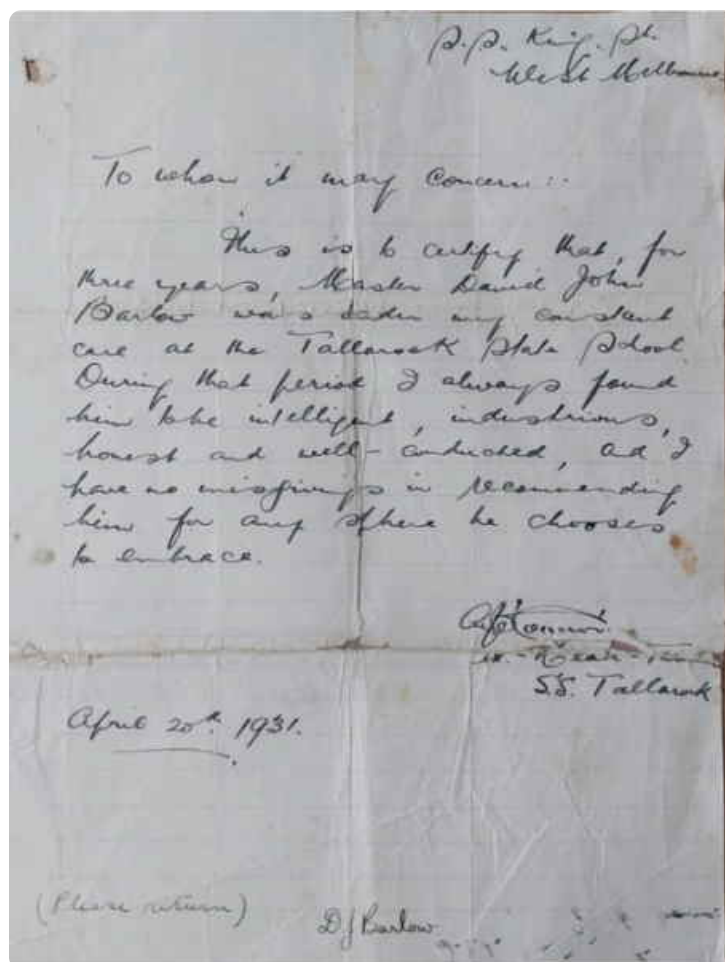 S.S. King. St.
West Melbourne
To whom it may concern:-
This is to certify that, for
three years, Master David John
Barlow was under my constant
care at the Tallarook State School.
During that period I always found
him to be intelligent, industrious,
honest and well-conducted, and I
have no misgivings in recommending
him for any sphere he chooses
to embrace.
O'Connor.
S.S. Tallarook
April 20th. 1931.
(Please return)
D J Barlow